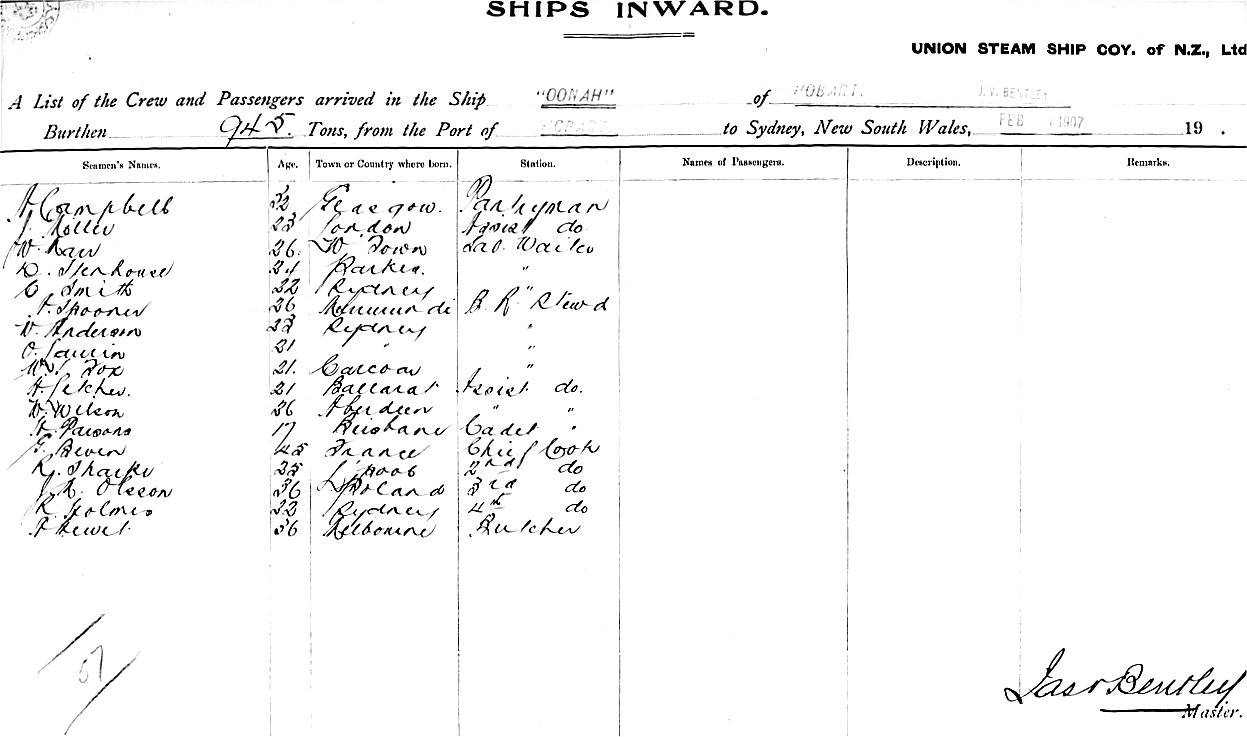 SHIPS INWARD.
UNION STEAM SHIP COY. of N.Z., Ltd
A List of the Crew and Passengers arrived in the Ship "OONAH" of HOBART. J.V. BENTLEY
Burthen 945. Tons, from the Port of HOBART to Sydney, New South Wales, FEB 1907 19 .
Seamen's Names. Age. Town or Country where born. Station. Names of Passengers. Description. Remarks.
A Campbell 32 Glasgow. Pantryman
J. 23 London Assist do
W. 26. Town Waiter
Stenhouse 24 "
C Smith 22 Sydney "
A. Spooner 26 B. R. Stewd
W. Anderson 23 Sydney "
O. 21 " "
Fox 21. Carcoar "
A. 21 Ballarat Assist do.
W. Wilson 36 Aberdeen " "
Parsons 17 Brisbane Cadet "
Beven 45 France Chief Cook
R. 35 L'pool 2nd do
J. Olsson 36 3rd do
R. Holmes 22 Sydney 4th do
36 Melbourne Butcher
57
Jas V Bentley
Master.